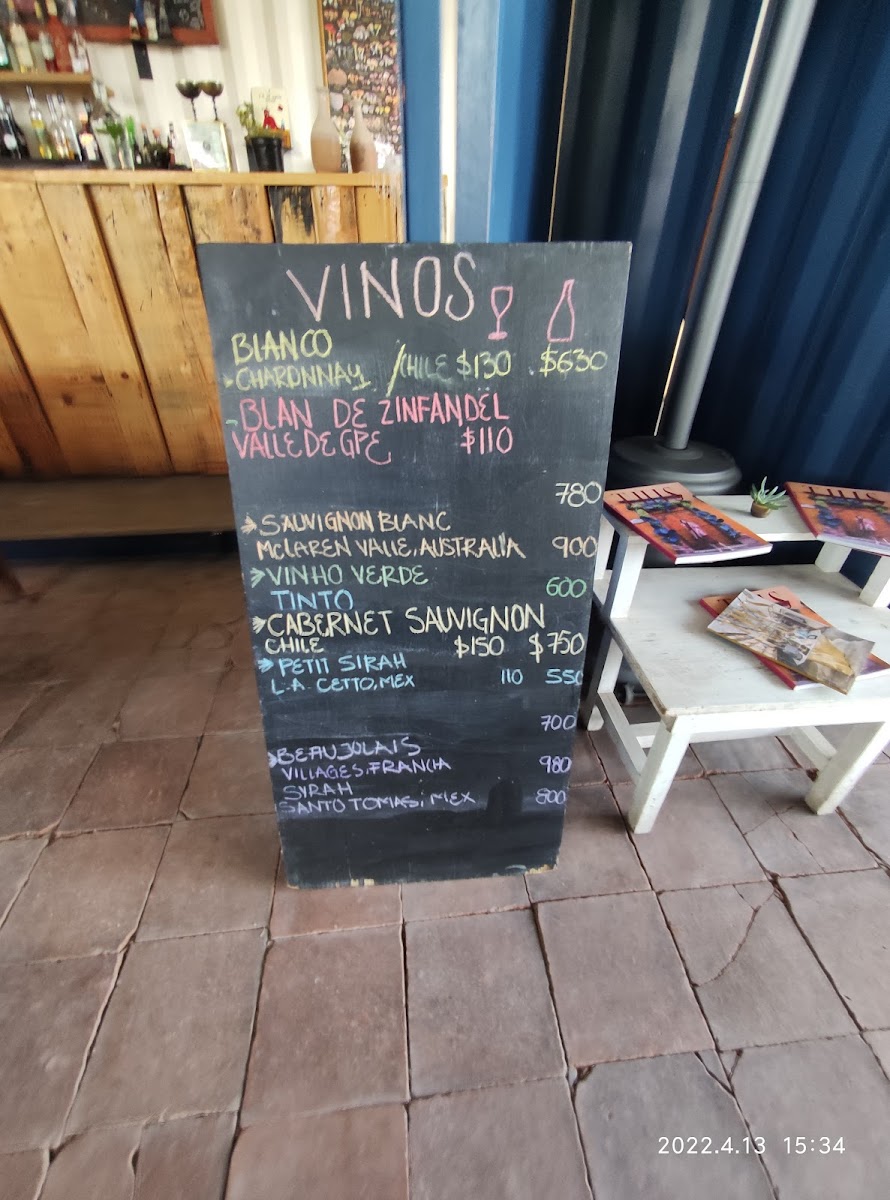 VINOS
BLANCO
CHARDNNAY /CHILE $130 $630
BLAN DE ZINFANDEL
VALLE DE GPE $110
780
SAUVIGNON BLANC
MCLAREN VALLE, AUSTRALIA 900
VINHO VERDE 600
TINTO
CABERNET SAUVIGNON
CHILE $150 $750
PETIT SIRAH
L.A. CETTO, MEX 110 550
700
BEAUJOLAIS
VILLAGES, FRANCIA 980
SYRAH
SANTO TOMAS, MEX 800
2022.4.13 15:34